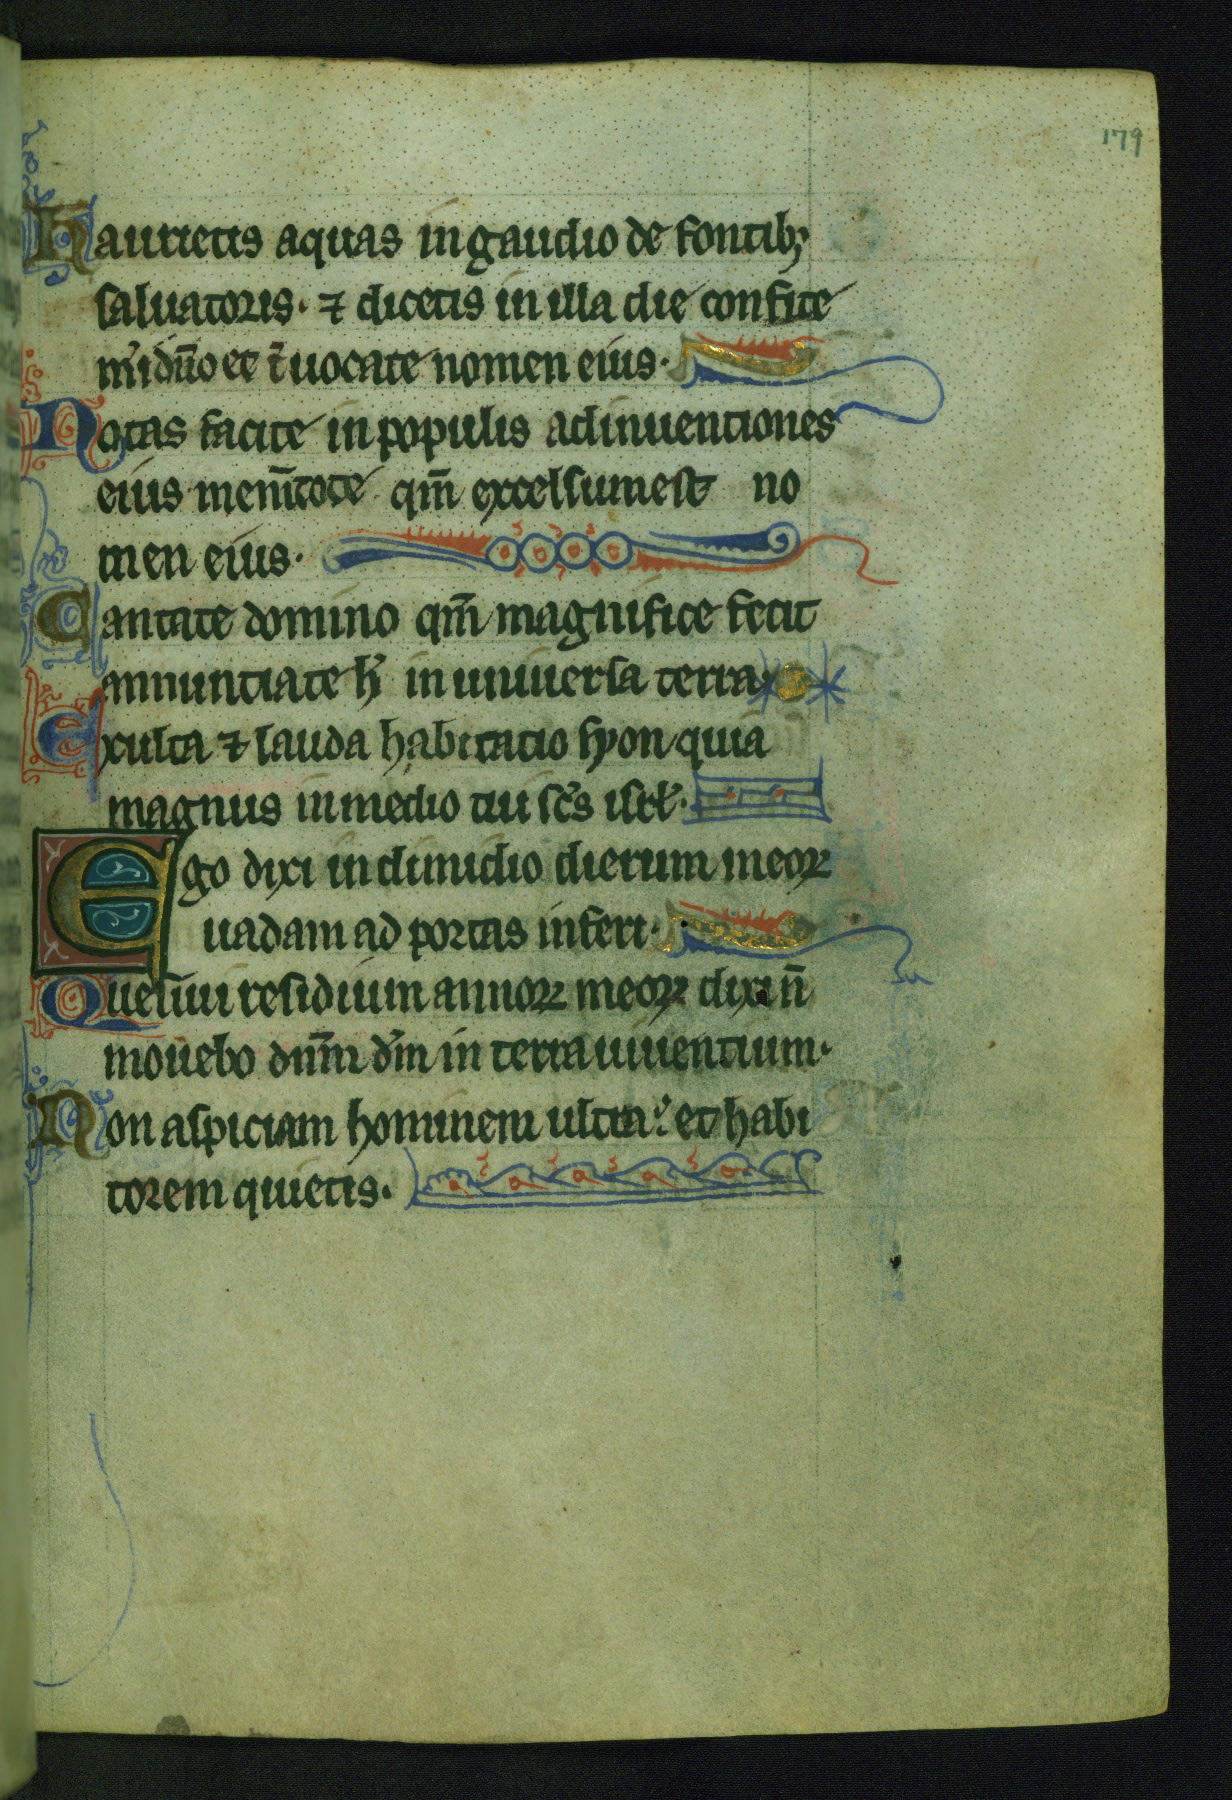 179
Haurietis aquas in gaudio de fontibꝫ
saluatoris. ⁊ dicetis in illa die confite
mͥ dn̄o et ī uocate nomen eius.
Notas facite in populis adinuentiones
eius mem̄tote qm̄ excelsum est no
men eius.
Cantate domino qm̄ magnifice fecit
annunciate h̄ in uniuersa terra
Exulta ⁊ lauda habitatio syon quia
magnus in medio tui sc̄s isrl̄.
Ego dixi in dimidio dierum meoꝝ
uadam ad portas inferi.
Quesiui residuum annoꝝ meoꝝ dixi n̄
mouebo dn̄m dm̄ in terra uiuentium.
Non aspiciam hominem ultra: et habi
torem quietis.